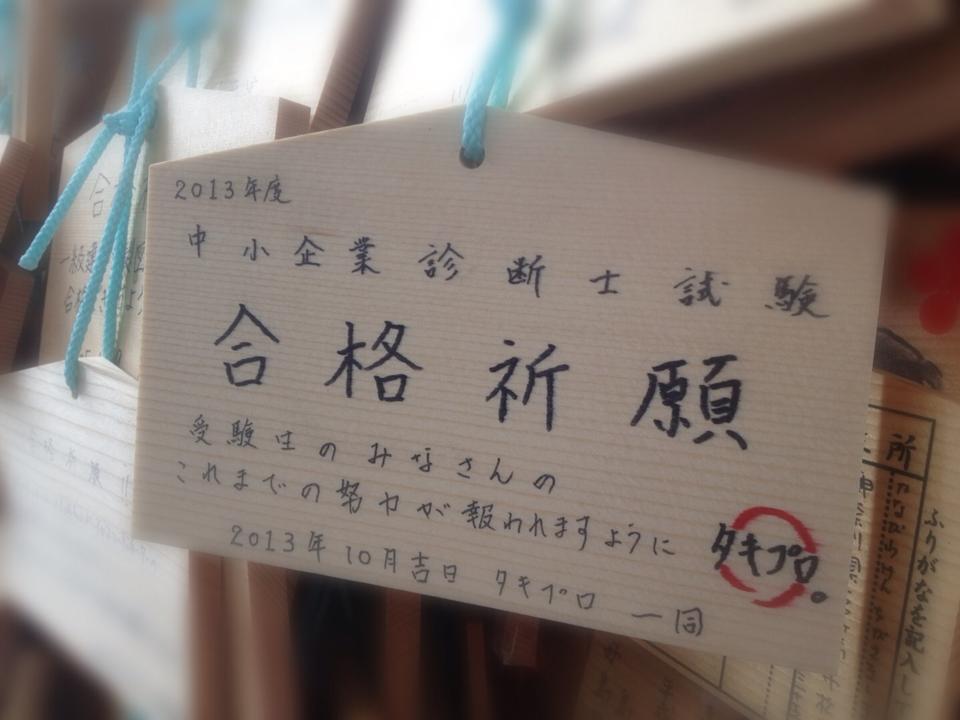 2013年度
中小企業診断士試験
合格祈願
受験生のみなさんの
これまでの努力が報われますように
2013年10月吉日 タキプロ 一同
タキプロ。
所
ふりがなを記入し